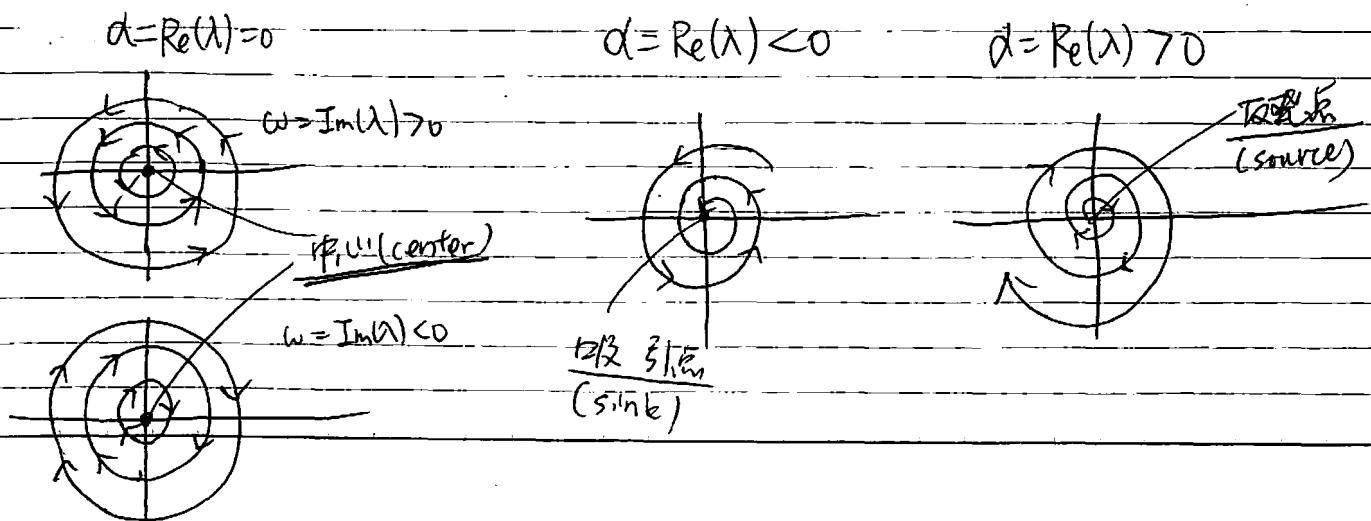 α=Re(λ)=0
ω=Im(λ)>0
中心(center)
ω=Im(λ)<0
α=Re(λ)<0
吸引点
(sink)
α=Re(λ)>0
点
(source)